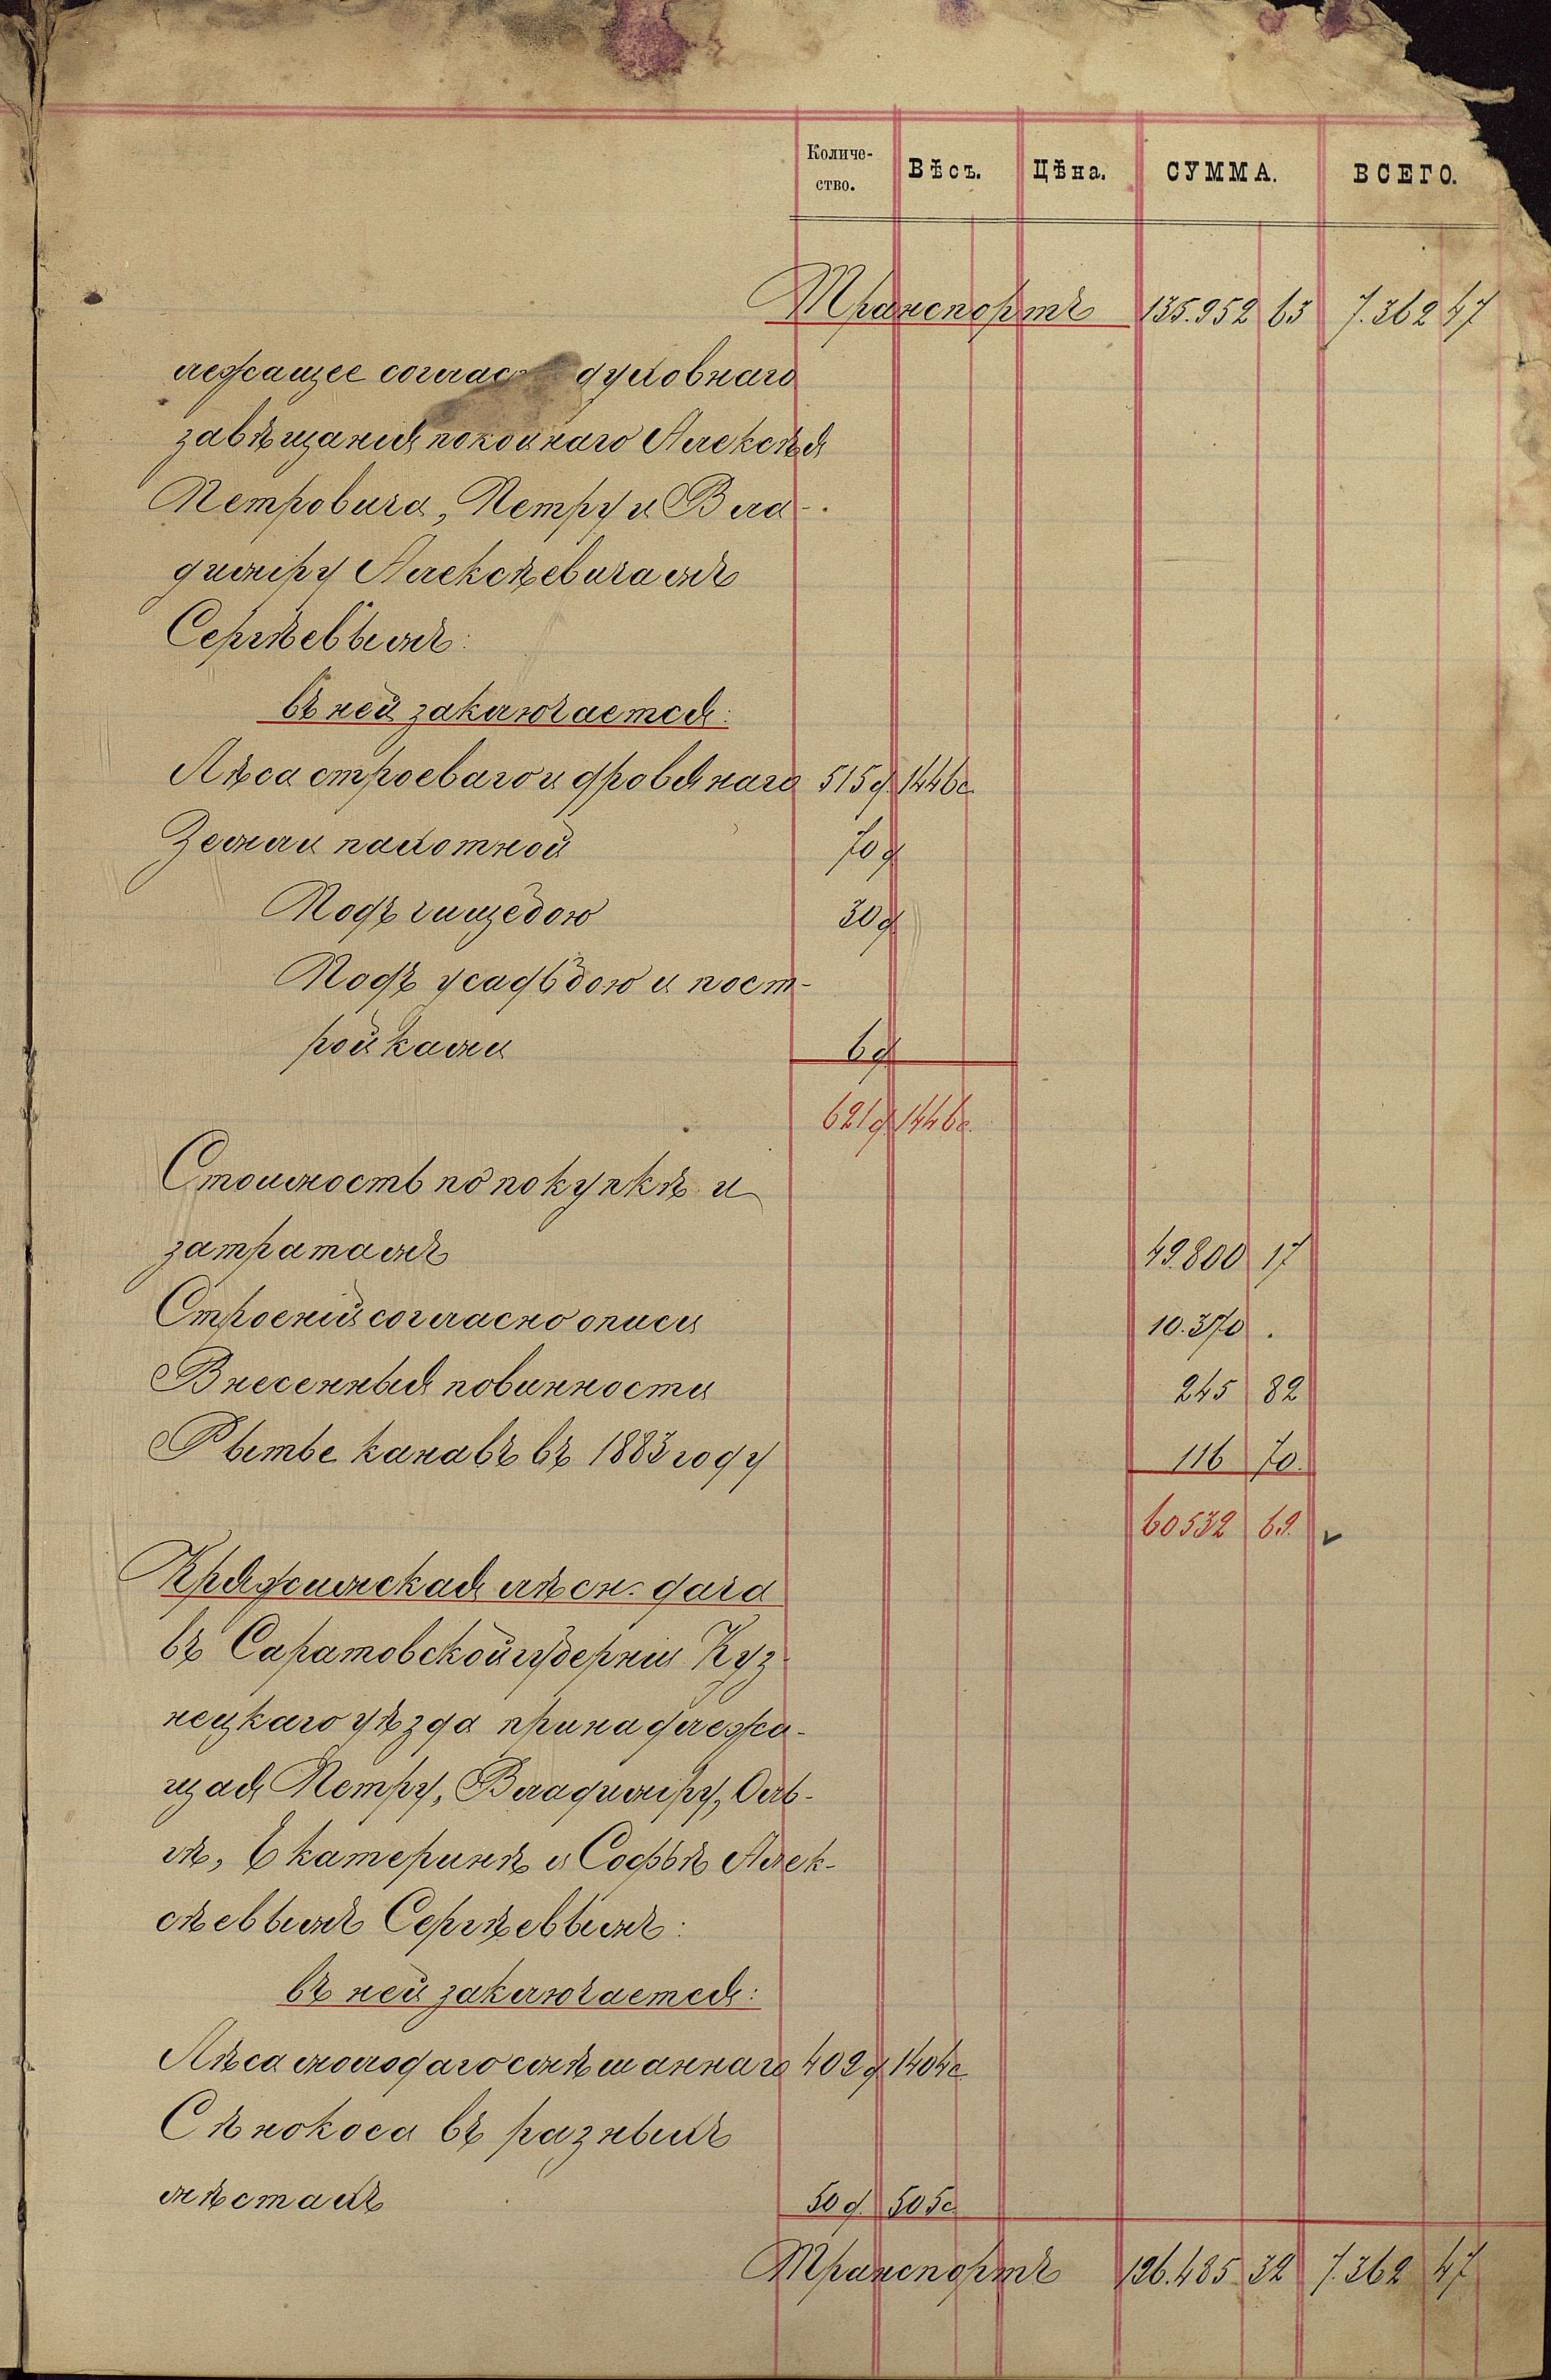 Количе-
ство. Вѣсъ. Цѣна. СУММА. ВСЕГО.
Транспортъ 135.952 63 7.362 47
лежащее соглас духовнаго
завѣщанія покойнаго Алексѣя
Петровича, Петру и Вла-
диміру Алексѣевичамъ
Сергѣевымъ:
въ ней заключается:
Лѣса строеваго и дровянаго 515 д. 1446 с.
Земли пахотной 70 д
Подъ чищебою 30 д.
Подъ усадьбою и пост-
ройками 6 д.
621 д. 1446 с.
Стоимость по покупкѣ и
затратамъ 49.800 17
Строеній согласно описи 10.370 .
Внесенныя повинности 245 82
Рытье канавъ въ 1883 году 116 70.
60532 69.
Кряжимская лѣсн. дача
въ Саратовской губерніи Куз-
нецкаго уѣзда принадлежа-
щая Петру, Владиміру, Оль-
гѣ, Екатеринѣ и Софьѣ Алек-
сѣевымъ Сергѣевымъ:
въ ней заключается:
Лѣса молодаго смѣшаннаго 402 д 1404 с.
Сѣнокоса въ разныхъ
мѣстахъ 50 д. 505 с.
Транспортъ 196.485 32 7.362 47